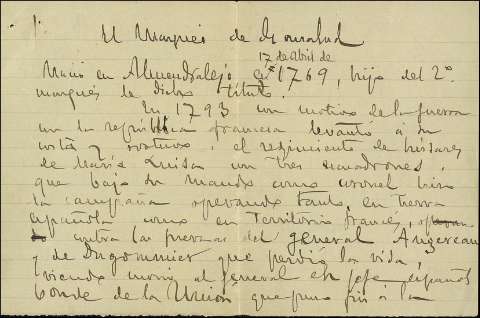 1.
El Marqués de Monsalud
17 de Abril de
Nació en Almendralejo en 1769, hijo del 2º
marqués de dicho título.
En 1793 con motivo de la guerra
con la república francesa levantó á su
costa y sostuvo el regimiento de húsares
de María Luisa con tres escuadrones,
que bajo su mando como coronel hizo
la campaña operando tanto en tierra
española como en territorio francés,
contra las fuerzas del general Augereau
y de Dugommier que perdió la vida,
viendo morir al general en jefe español
Conde de la Unión, que puso fin á la